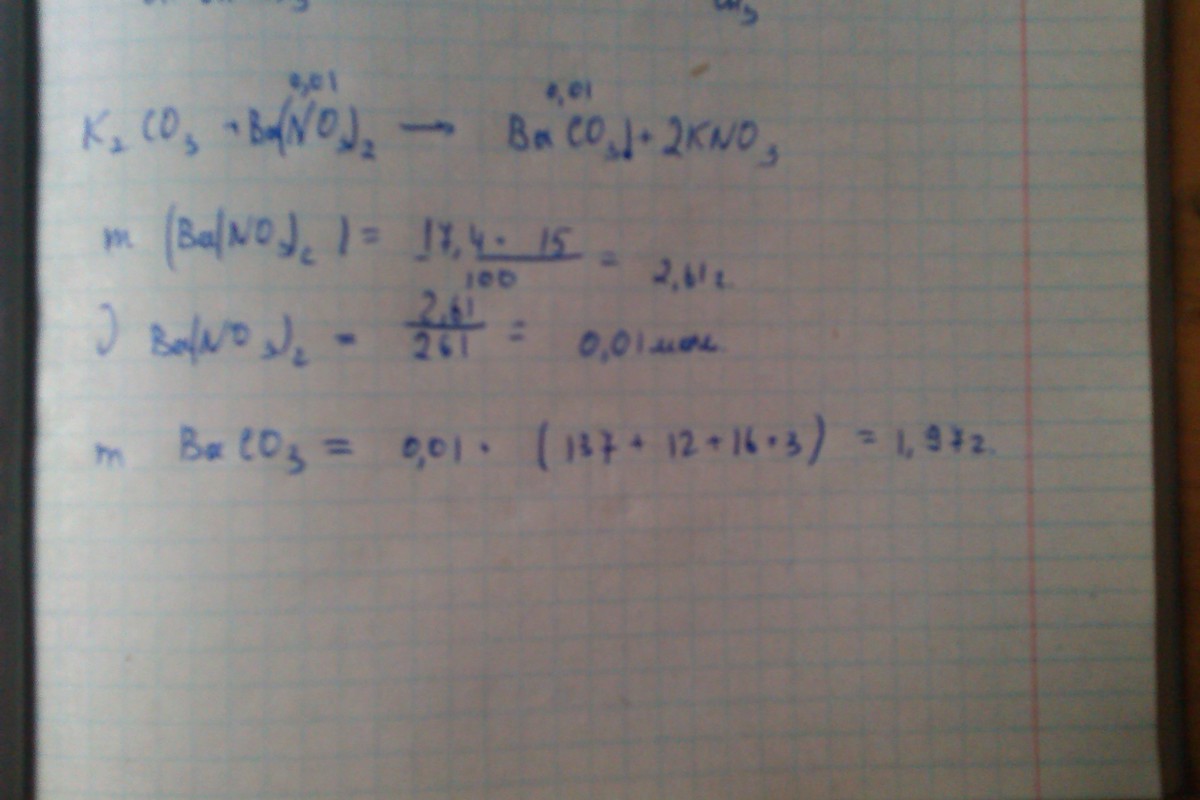 0,01 0,01
K₂CO₃ + Ba(NO₃)₂ → BaCO₃↓ + 2KNO₃
m (Ba(NO₃)₂) = 17,4 · 15 / 100 = 2,61 г.
) Ba(NO₃)₂ = 2,61 / 261 = 0,01 моль.
m BaCO₃ = 0,01 · (137 + 12 + 16 · 3) = 1,97 г.